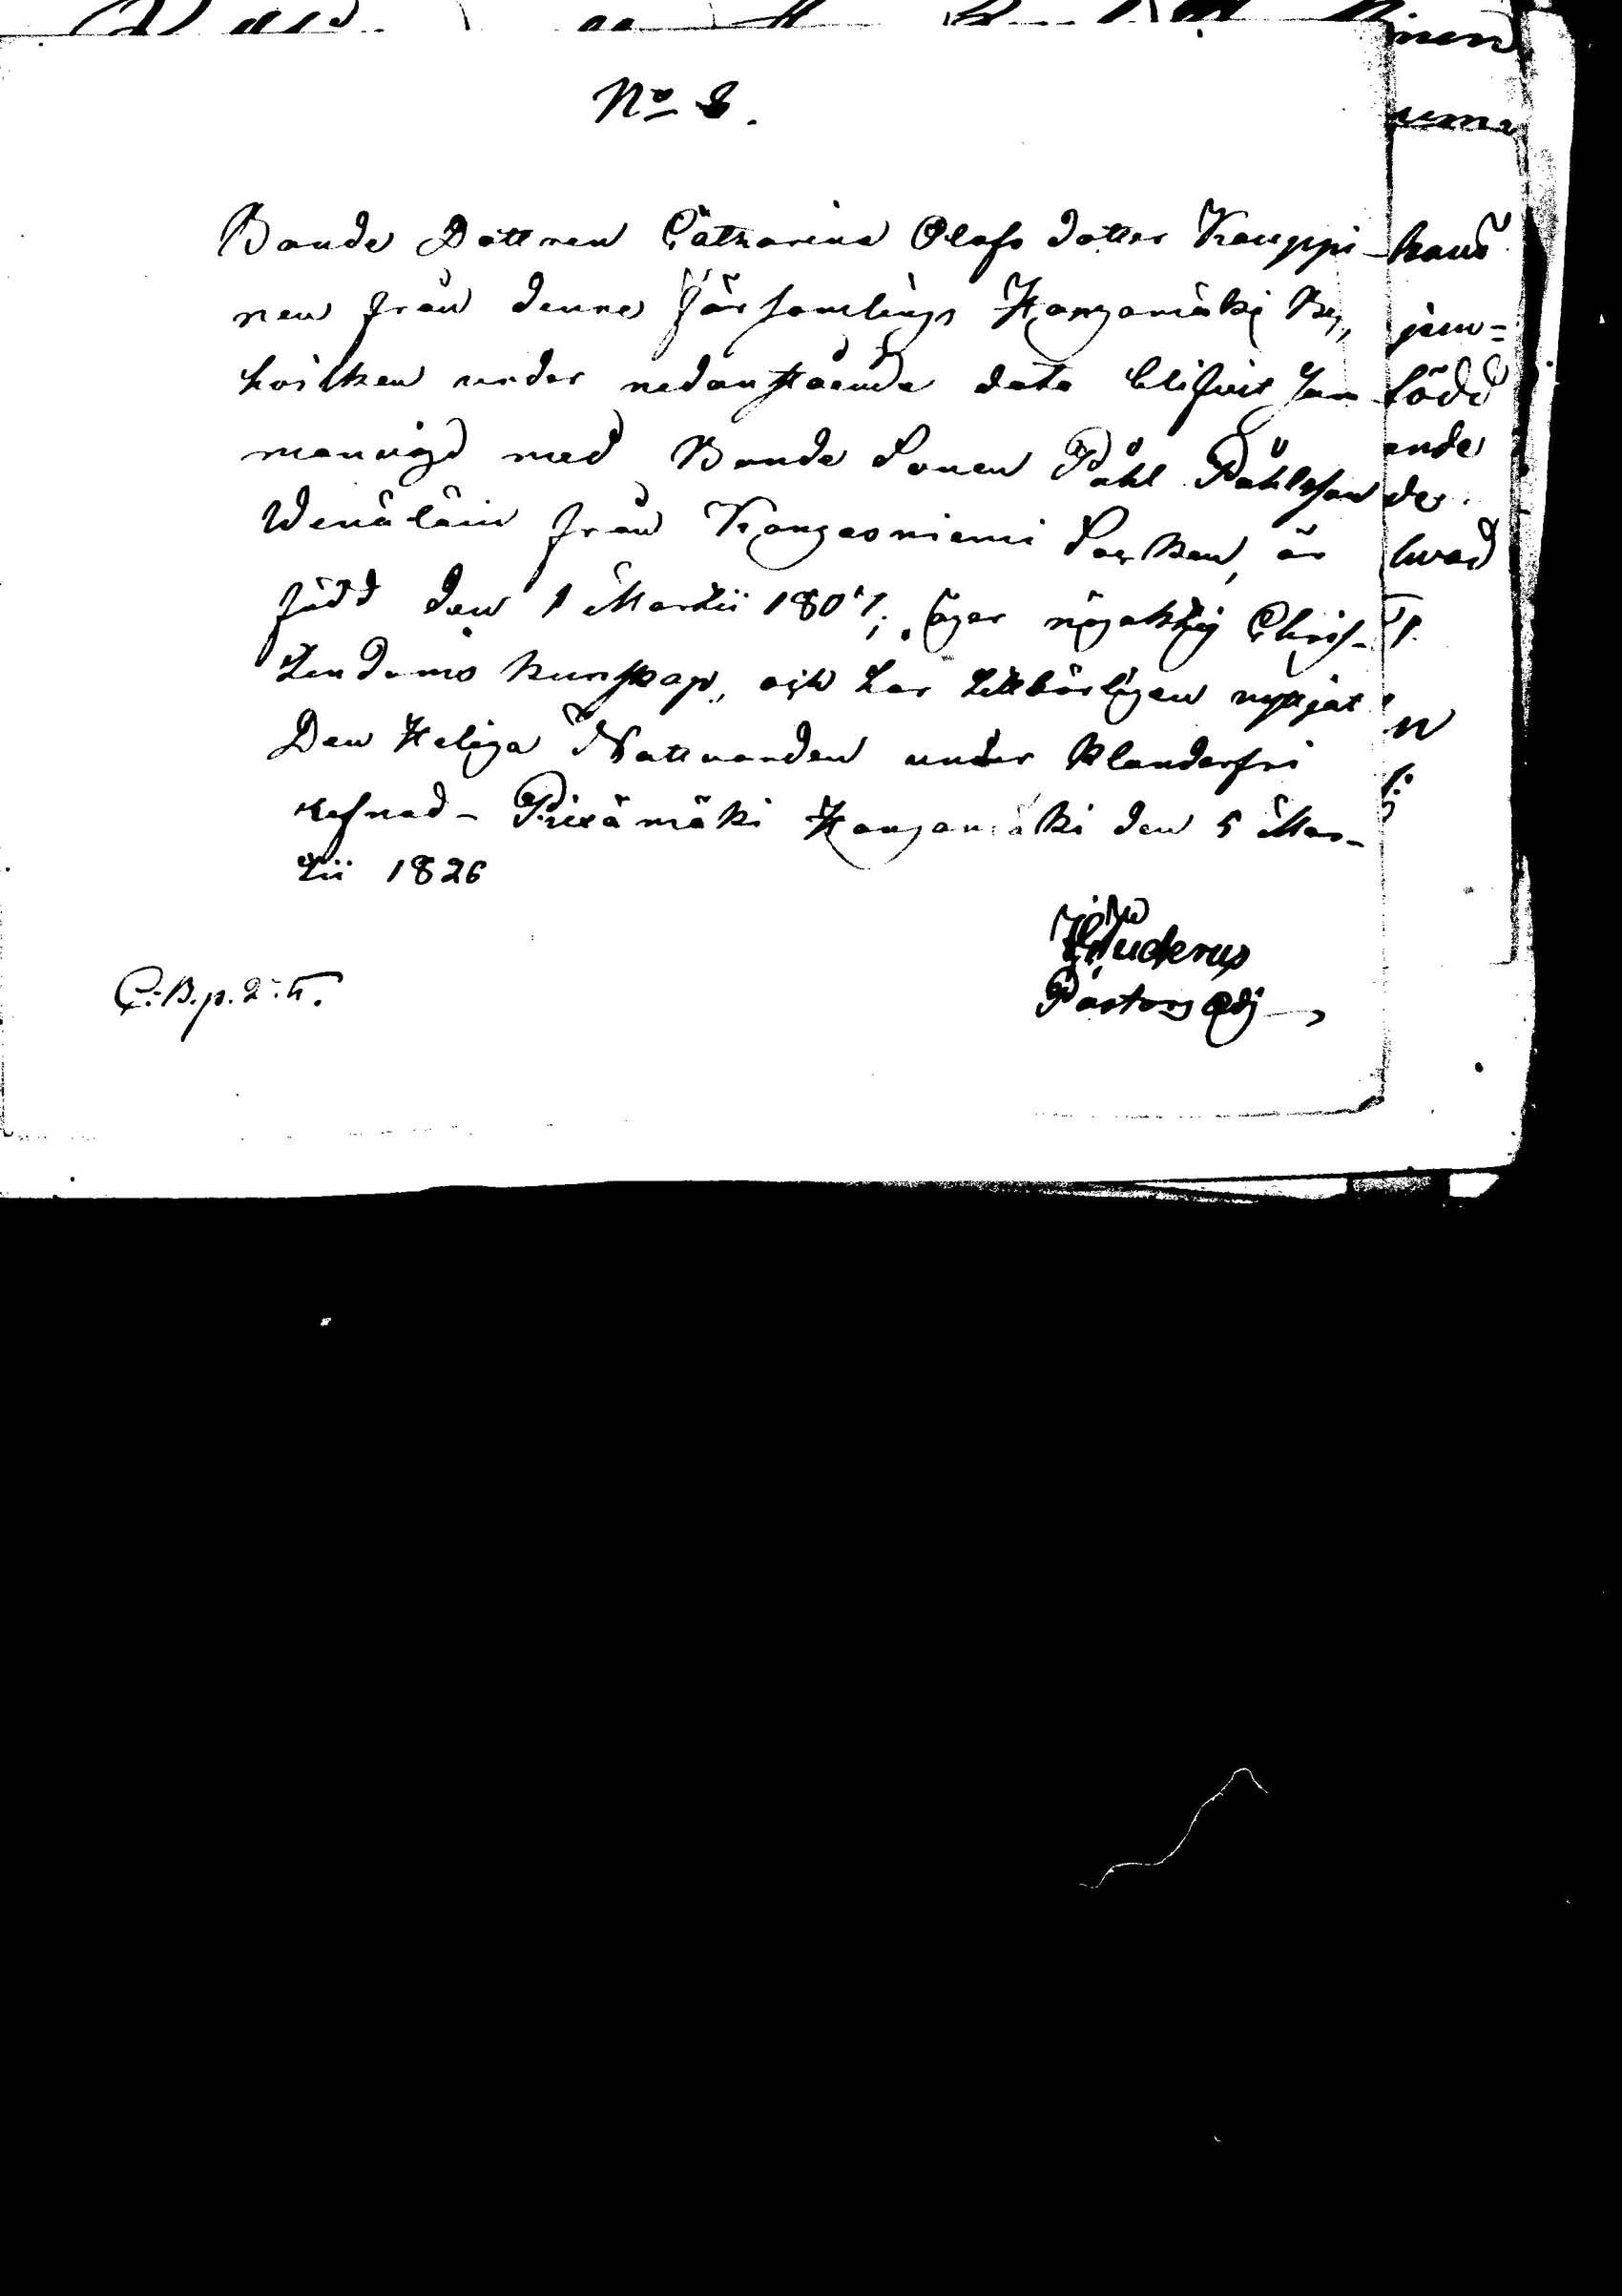 No 8.
Bonde Dottren Catharina Olafs dotter Kauppi-
nen från denne Församlings Hangamäki By,
hvilken under nedanstående dato blifvit Sam
manvigd med Bonde Sonen Påhl Påhlsson
Wenäläin från Kangasniemi Socken, är
född den 1 Martii 1807; äger nöjaktig Chris-
tendoms kunskap, och har tillbörligen nyttjat
Den Heliga Nattvarden under klanderfri
refnad - Piexämäki Hangamäki den 5 Mar-
tii 1826
Pastors Adj
C.B.p.
nen
hans
jem=
född
ande
des
hvad